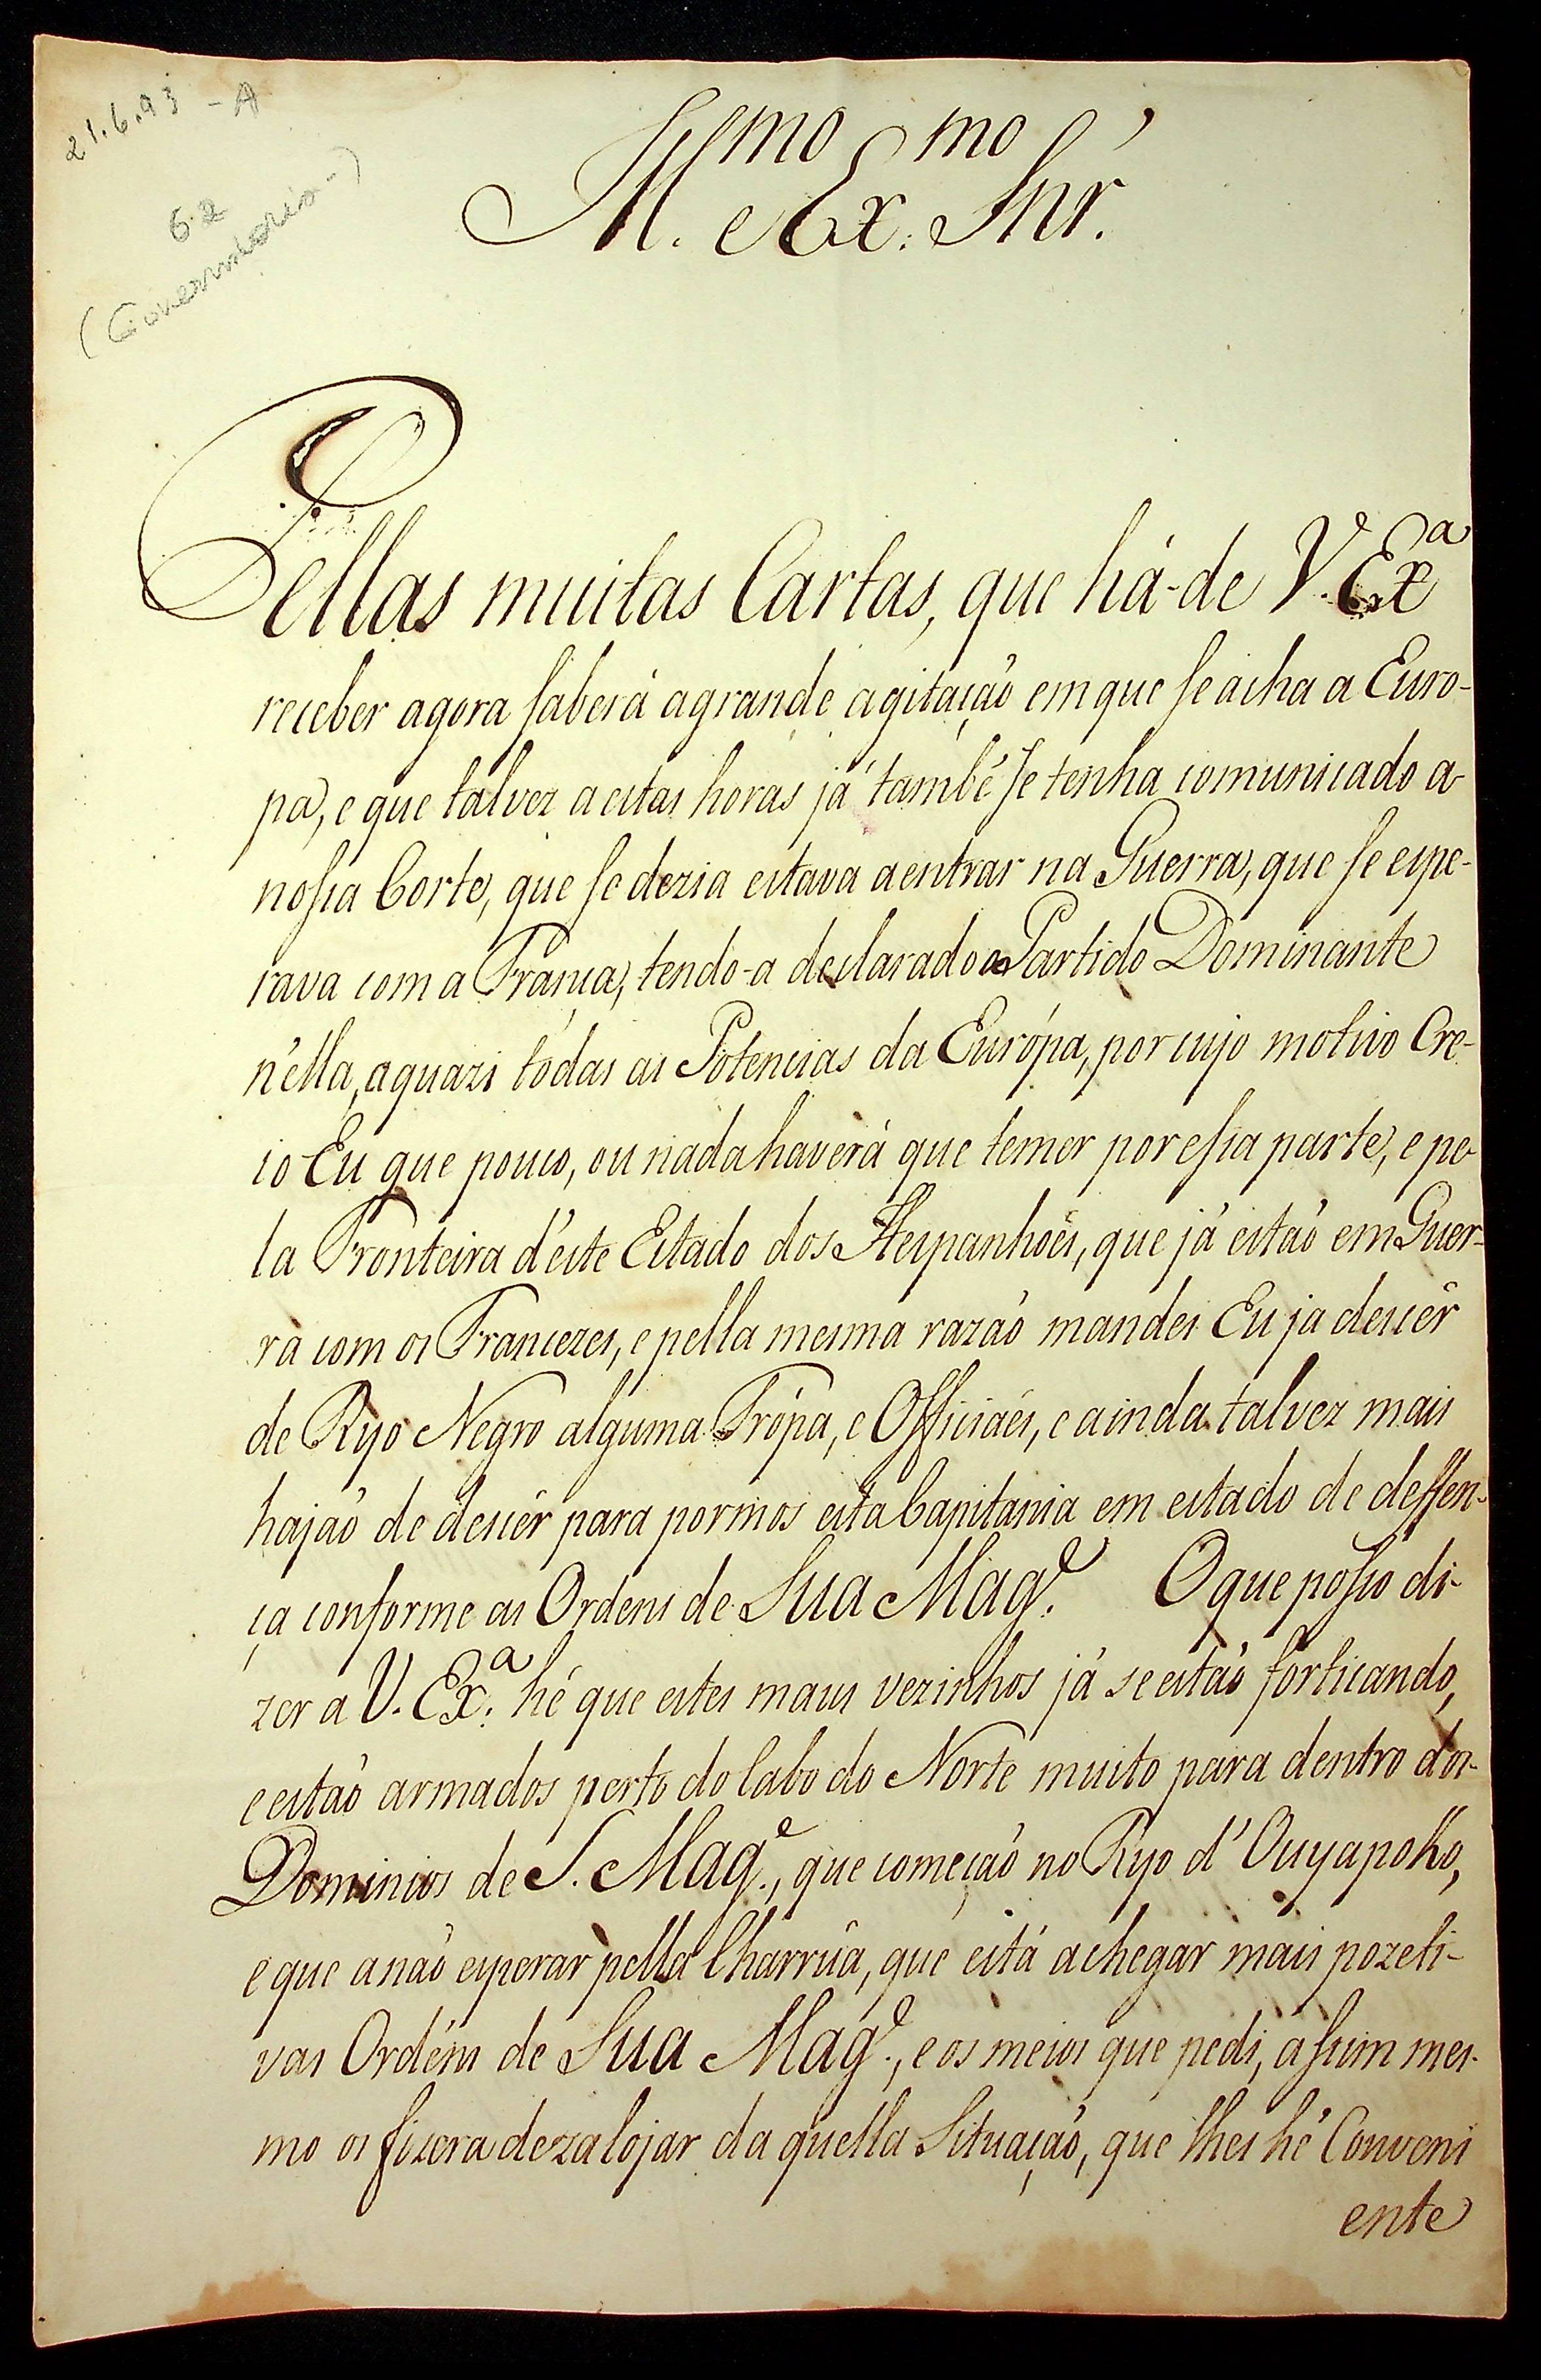 21.6.93 - A
62
(Governadoris-)
Ill.mo e Ex.mo Snr.'
Pellas muitas Cartas, que há-de V. Exa
receber agora saberá agrande agitação emque se acha a Euro-
pa, e que talvez a estas horas já també se tenha comunicado a
nossa Corte, que se dezia estava aentrar na Guerra, que se espe-
rava com a França, tendo-a declarado o Partido Dominante
n'ella, aquazi tòdas as Potencias da Európa, por cujo motivo Cre-
io Eu que pouco, ou nada haverá que temer por essa parte, e pe-
la Fronteira d'este Estado dos Hespanhoés, que já estão em Guer-
ra com os Francezes, e pella mesma razaõ mandei Eu ja descêr
de Ryo Negro alguma Trópa, e Officiaés, e ainda talvez mais
hajaõ de descêr para pormos esta Capitania em estado de deffen-
ça conforme as Ordens de Sua Mag.e O que posso di-
zer a V. Ex.a hé que estes maus vezinhos já se estaõ forticando,
e estaõ armados perto do Cabo do Norte muito para dentro dos
Dominios de S. Mag.e, que começaõ no Ryo d'Ouyapoko,
e que a naõ esperar pella Charrúa, que está achegar mais pozeti-
vas Ordéns de Sua Mag.e, e os meios que pedi, assim mes-
mo os fizera dezalojar da quella Situaçaõ, que lhes hé Conveni
ente